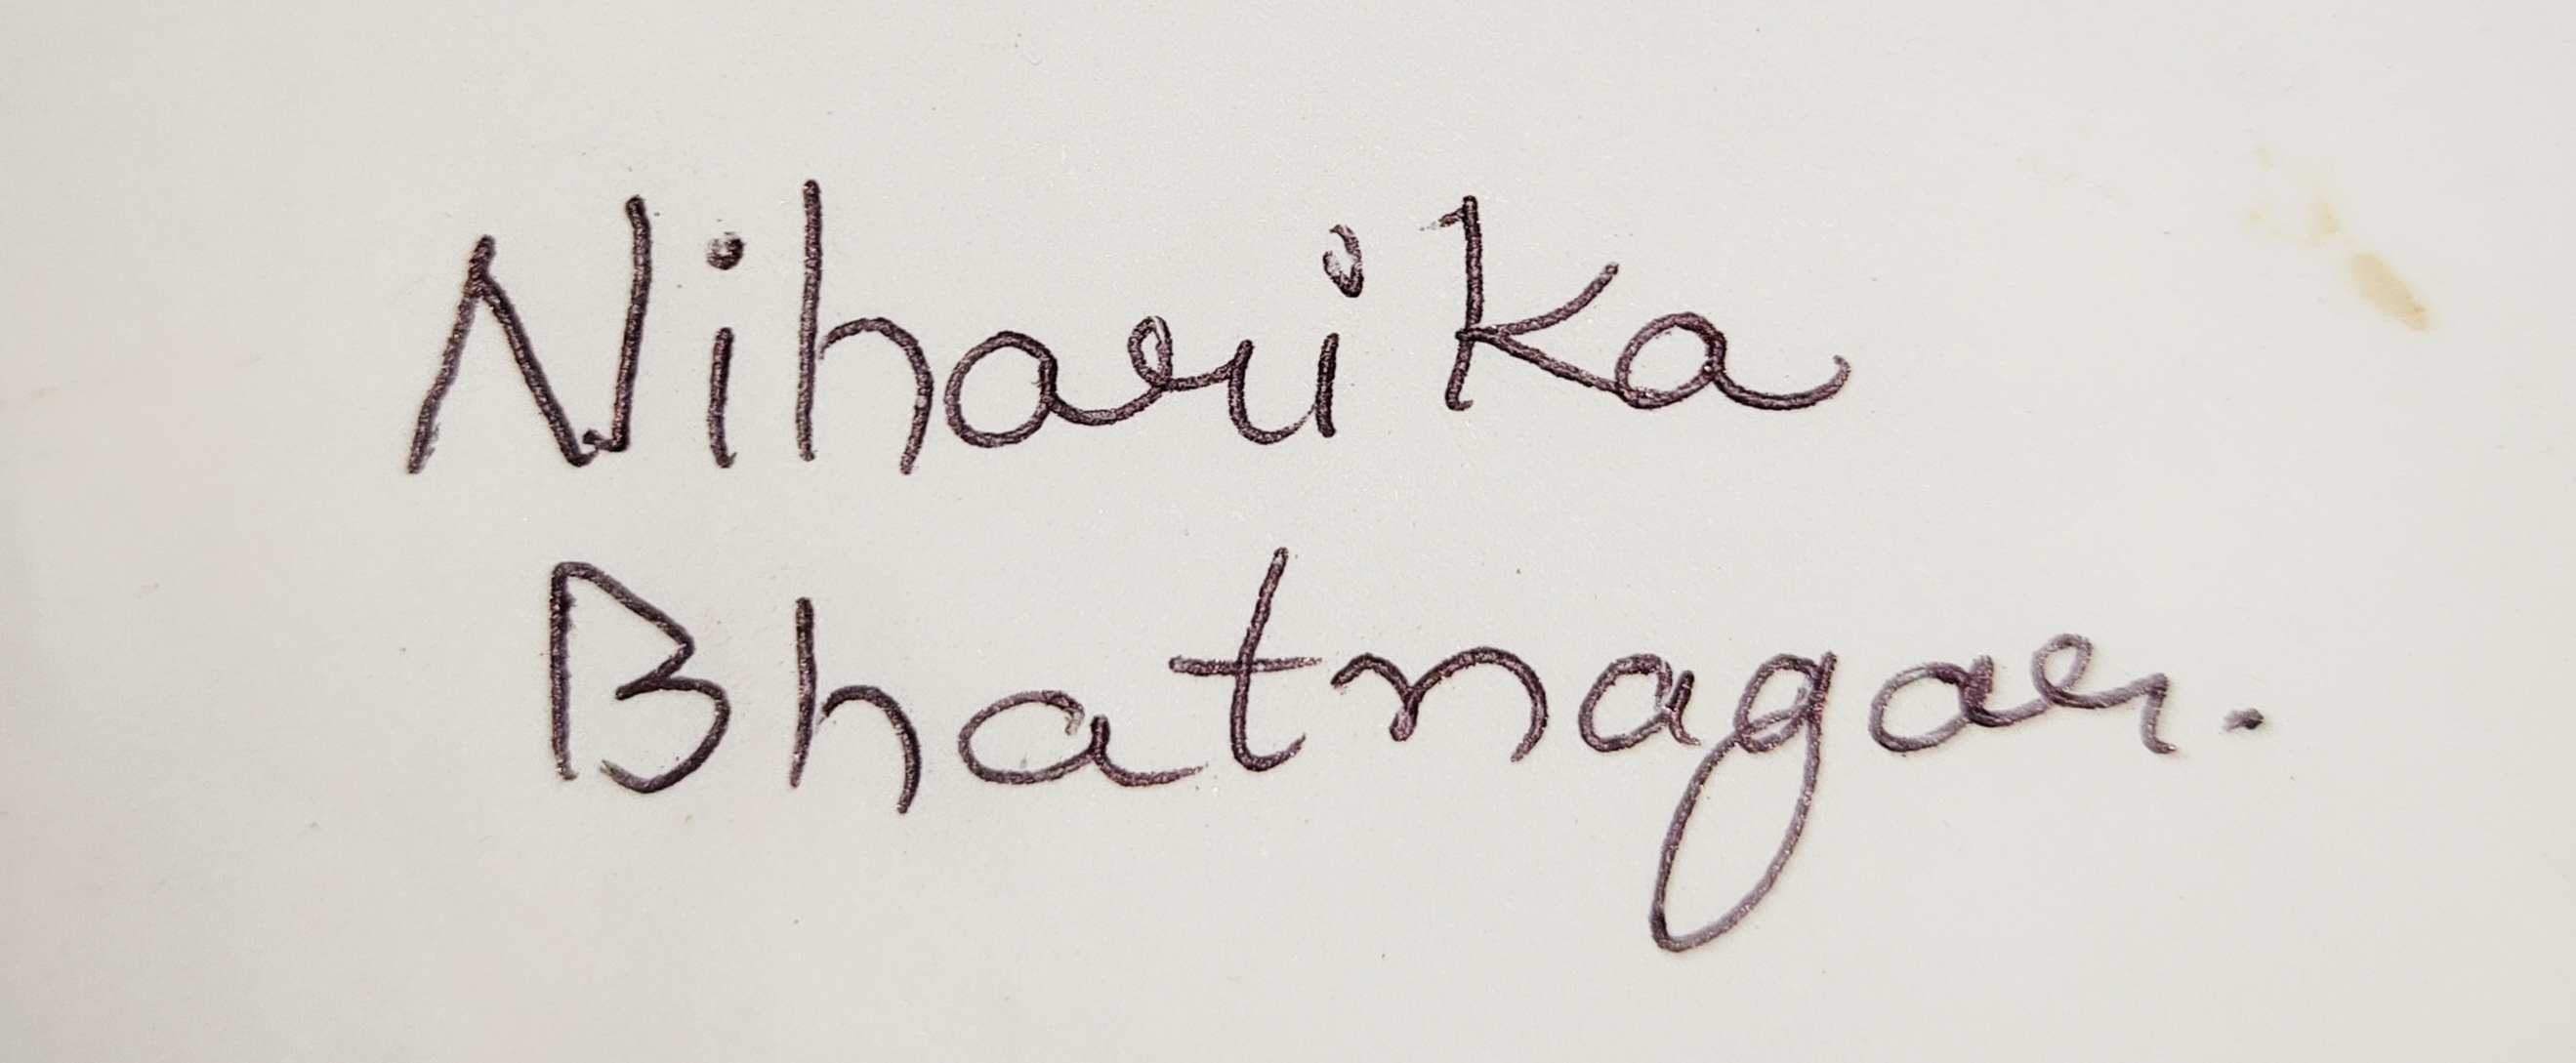 Niharika
Bhatnagar.